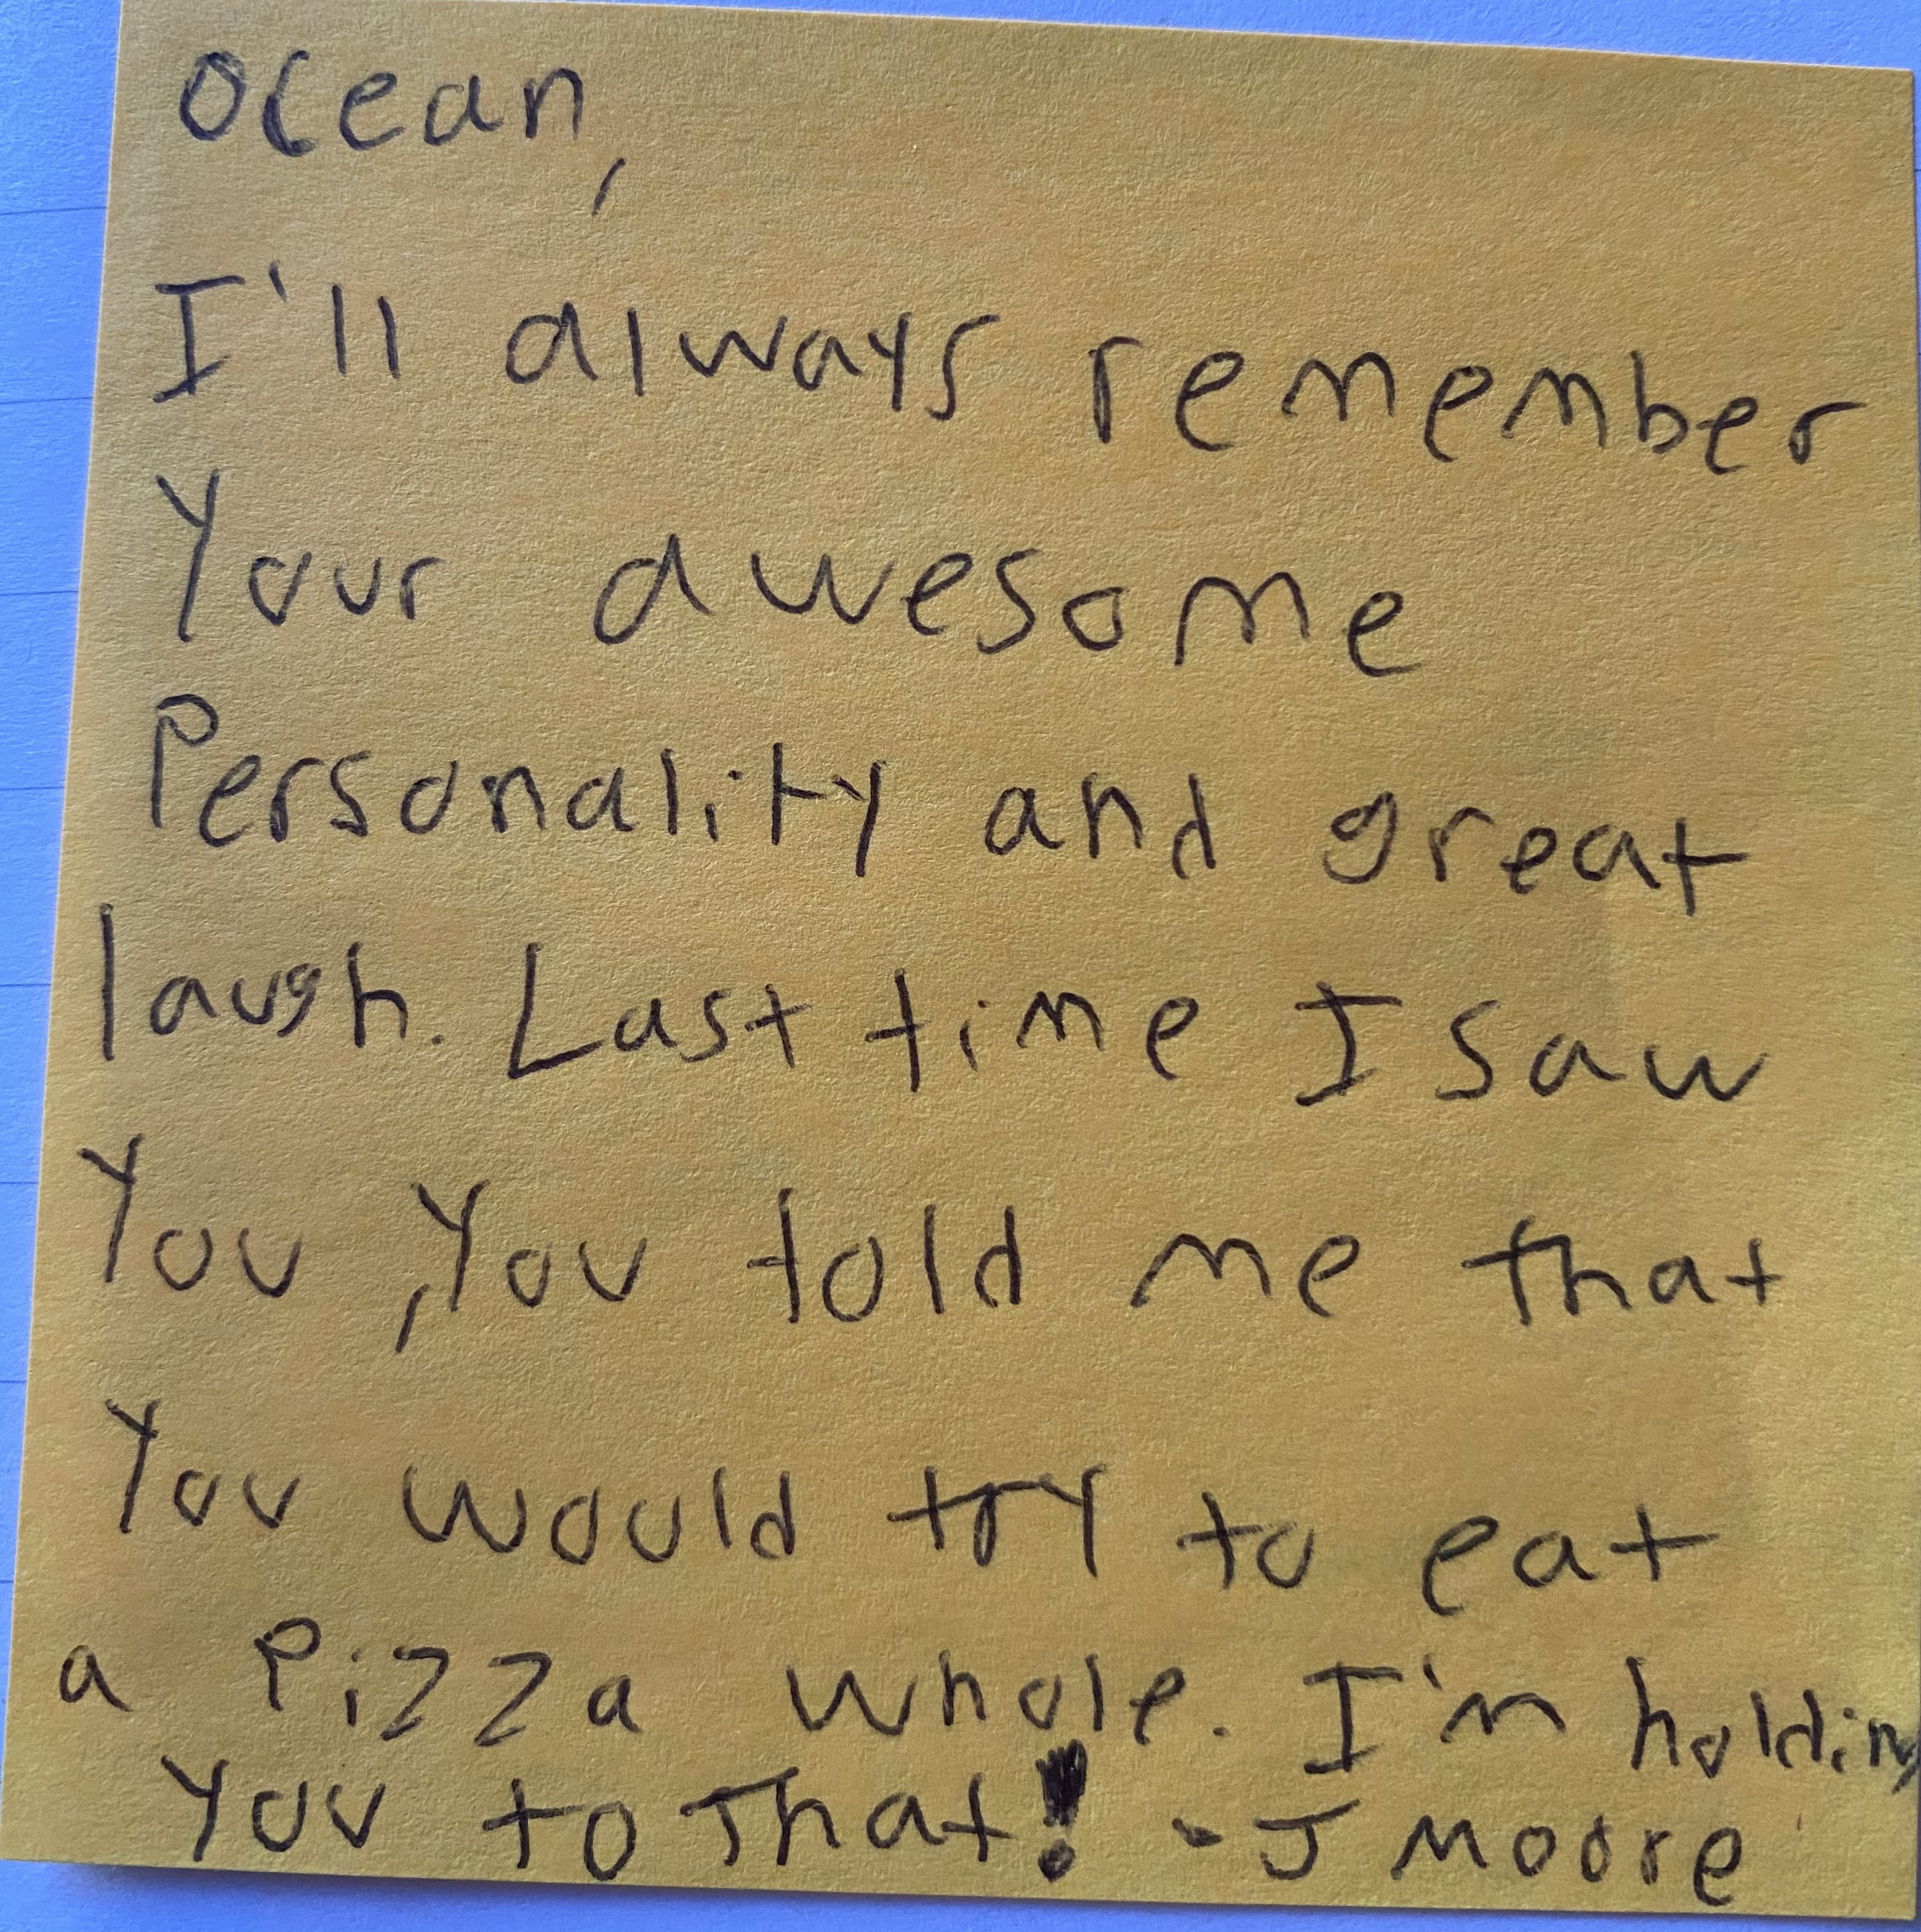 Ocean,
I'll always remember
Your awesome
Personality and great
laugh. Last time I saw
You, You told me that
You would try to eat
a Pizza whole. I'm holding
You to That! - J Moore